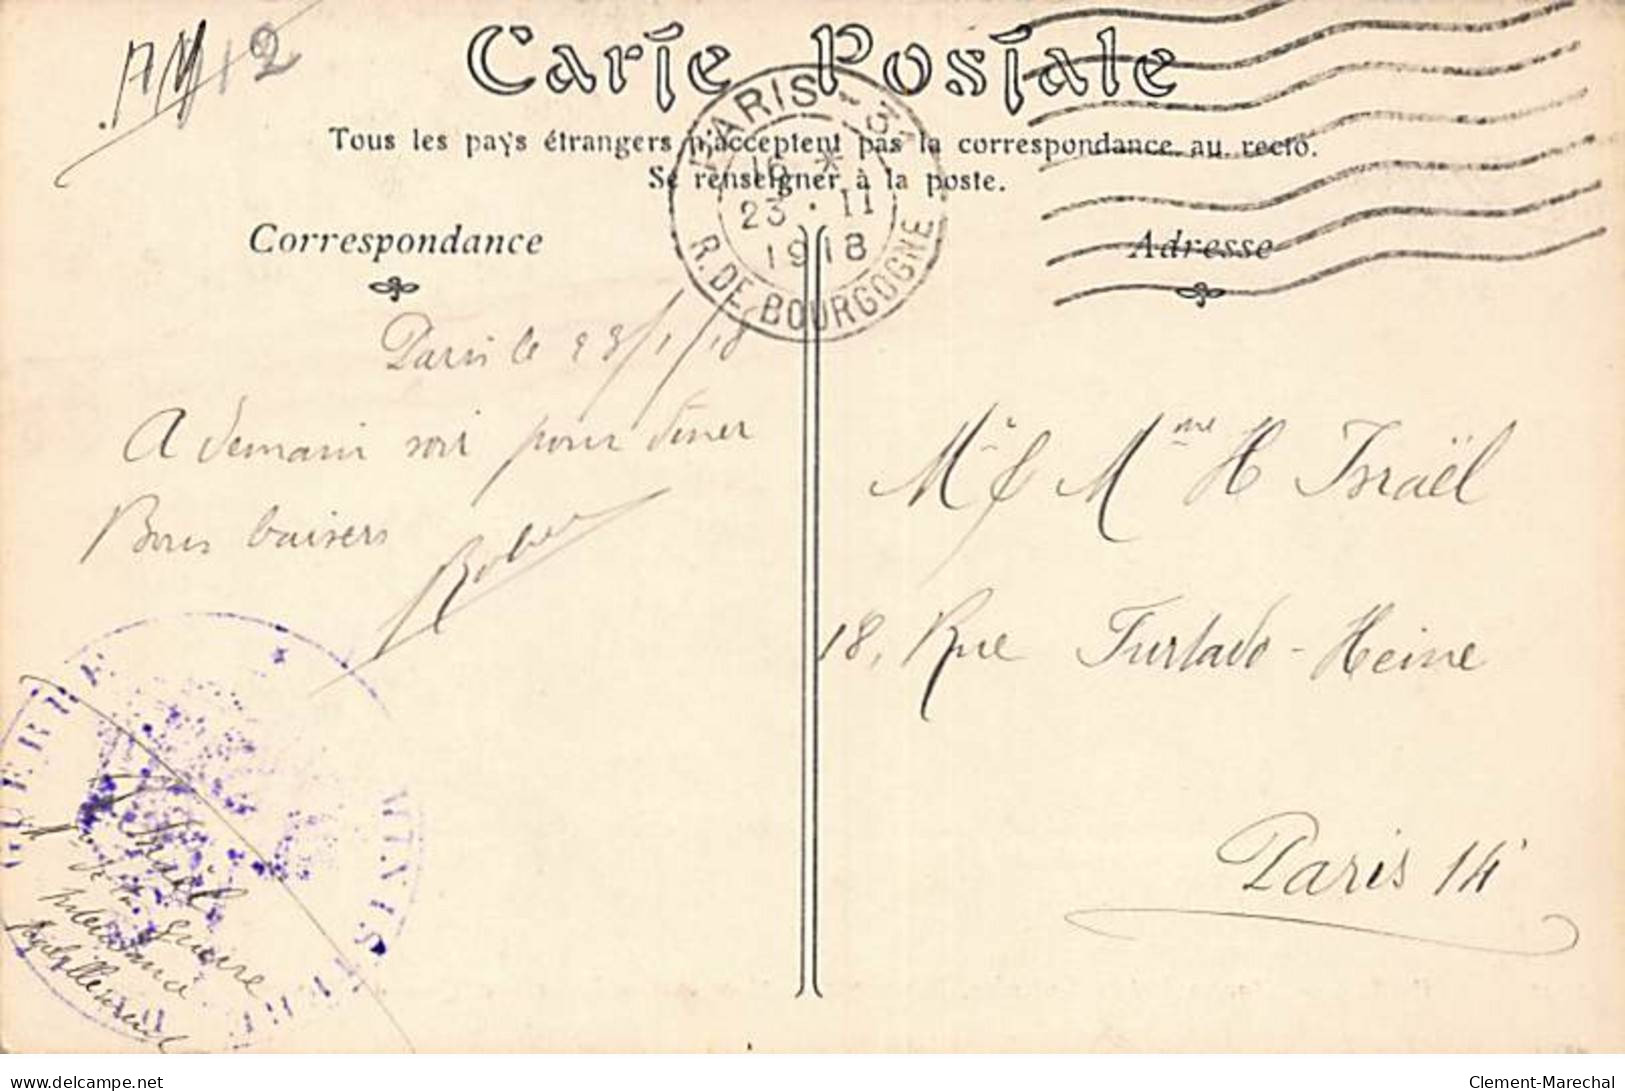 12
Carte Postale
Tous les pays étrangers n'acceptent pas la correspondance au recto.
Se renseigner à la poste.
PARIS - 3
16 *
23 · 11
1918
R. DE BOURGOGNE
Correspondance
Adresse
Paris le 23/1/18
A demain soir pour diner
Bons baisers
Robert
Mr & Mme H Israël
18, Rue Furtado-Heine
Paris 14
GUERRE
MINIS
Israël
de la guerre
delcampe.net
Clement-Marechal